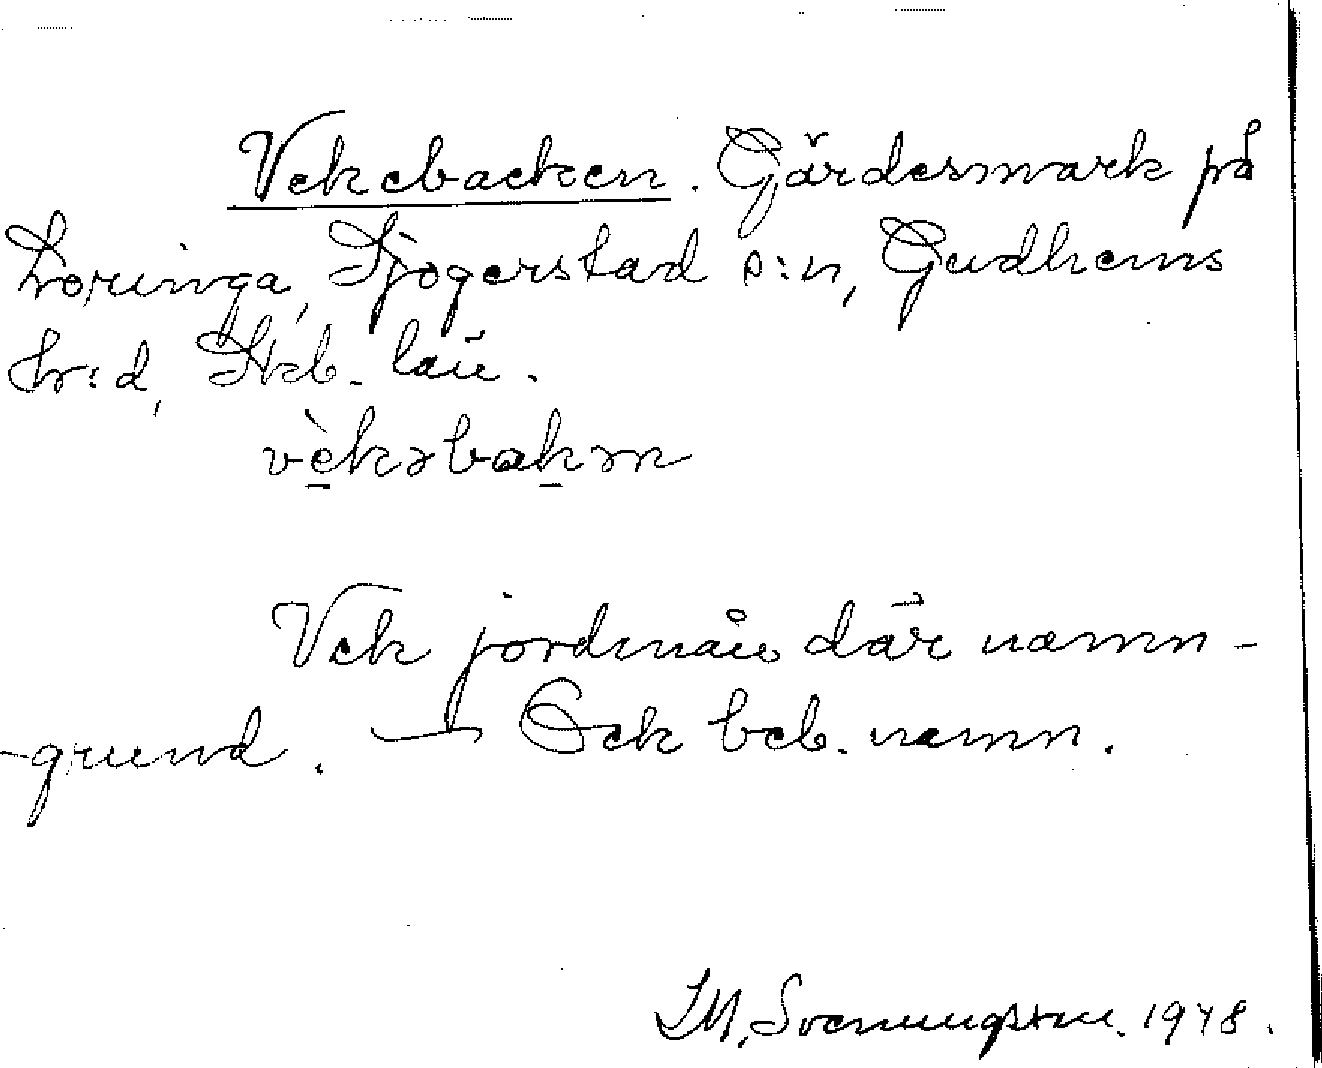 Vekebacken. Gärdesmark på
Loringa, Sjögerstad s:n, Gudhems
hr:d, Skb. län.
vèkəbakən
Vek jordmån där namn-
-grund. → Ock beb. namn.
I M, Svenungsson. 1948.